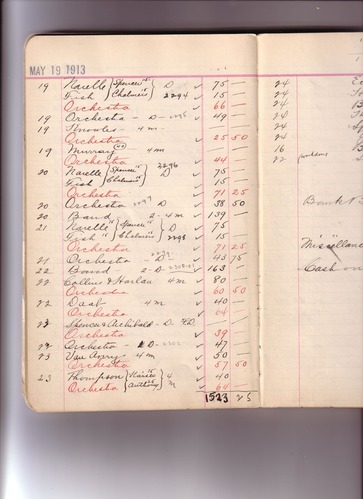 MAY 19 1913
19 Narelle Spencer D ✓ 75 —
Fish Chalmers 2294 ✓ 15 —
Orchestra ✓ 66 —
19 Orchestra - D - ✓ 49 —
19 Knowles - 4 m.
Orchestra ✓ 25 50
19 Murray 4 m
Orchestra ✓ 44 —
20 Narelle Spencer 2296 D ✓ 75 —
Fish Chalmers ✓ 15 —
Orchestra 71 25
20 Orchestra 2297 D ✓ 38 50
20 Band 2-4m ✓ 139 —
21 Narelle Spencer D ✓ 75
Fish Chalmers 2298 ✓ 15
Orchestra ✓ 71 25
21 Orchestra ✓ 43 75
22 Band 2-D ✓ 163 —
22 Collins & Harlan 4 m ✓ 80
Orchestra 60 50
22 Daab 4 m ✓ 40 —
Orchestra ✓ 64
23 Spencer & Archibald - D
Orchestra ✓ 39
Orchestra D ✓ 47
23 Van 4 m ✓ 50
Orchestra 57 50
23 Thompson 4 ✓ 40
Orchestra Anthony m ✓ 64
1523 25
24
24
24
24
24
16
22
Bank
Miscellane
Cash on